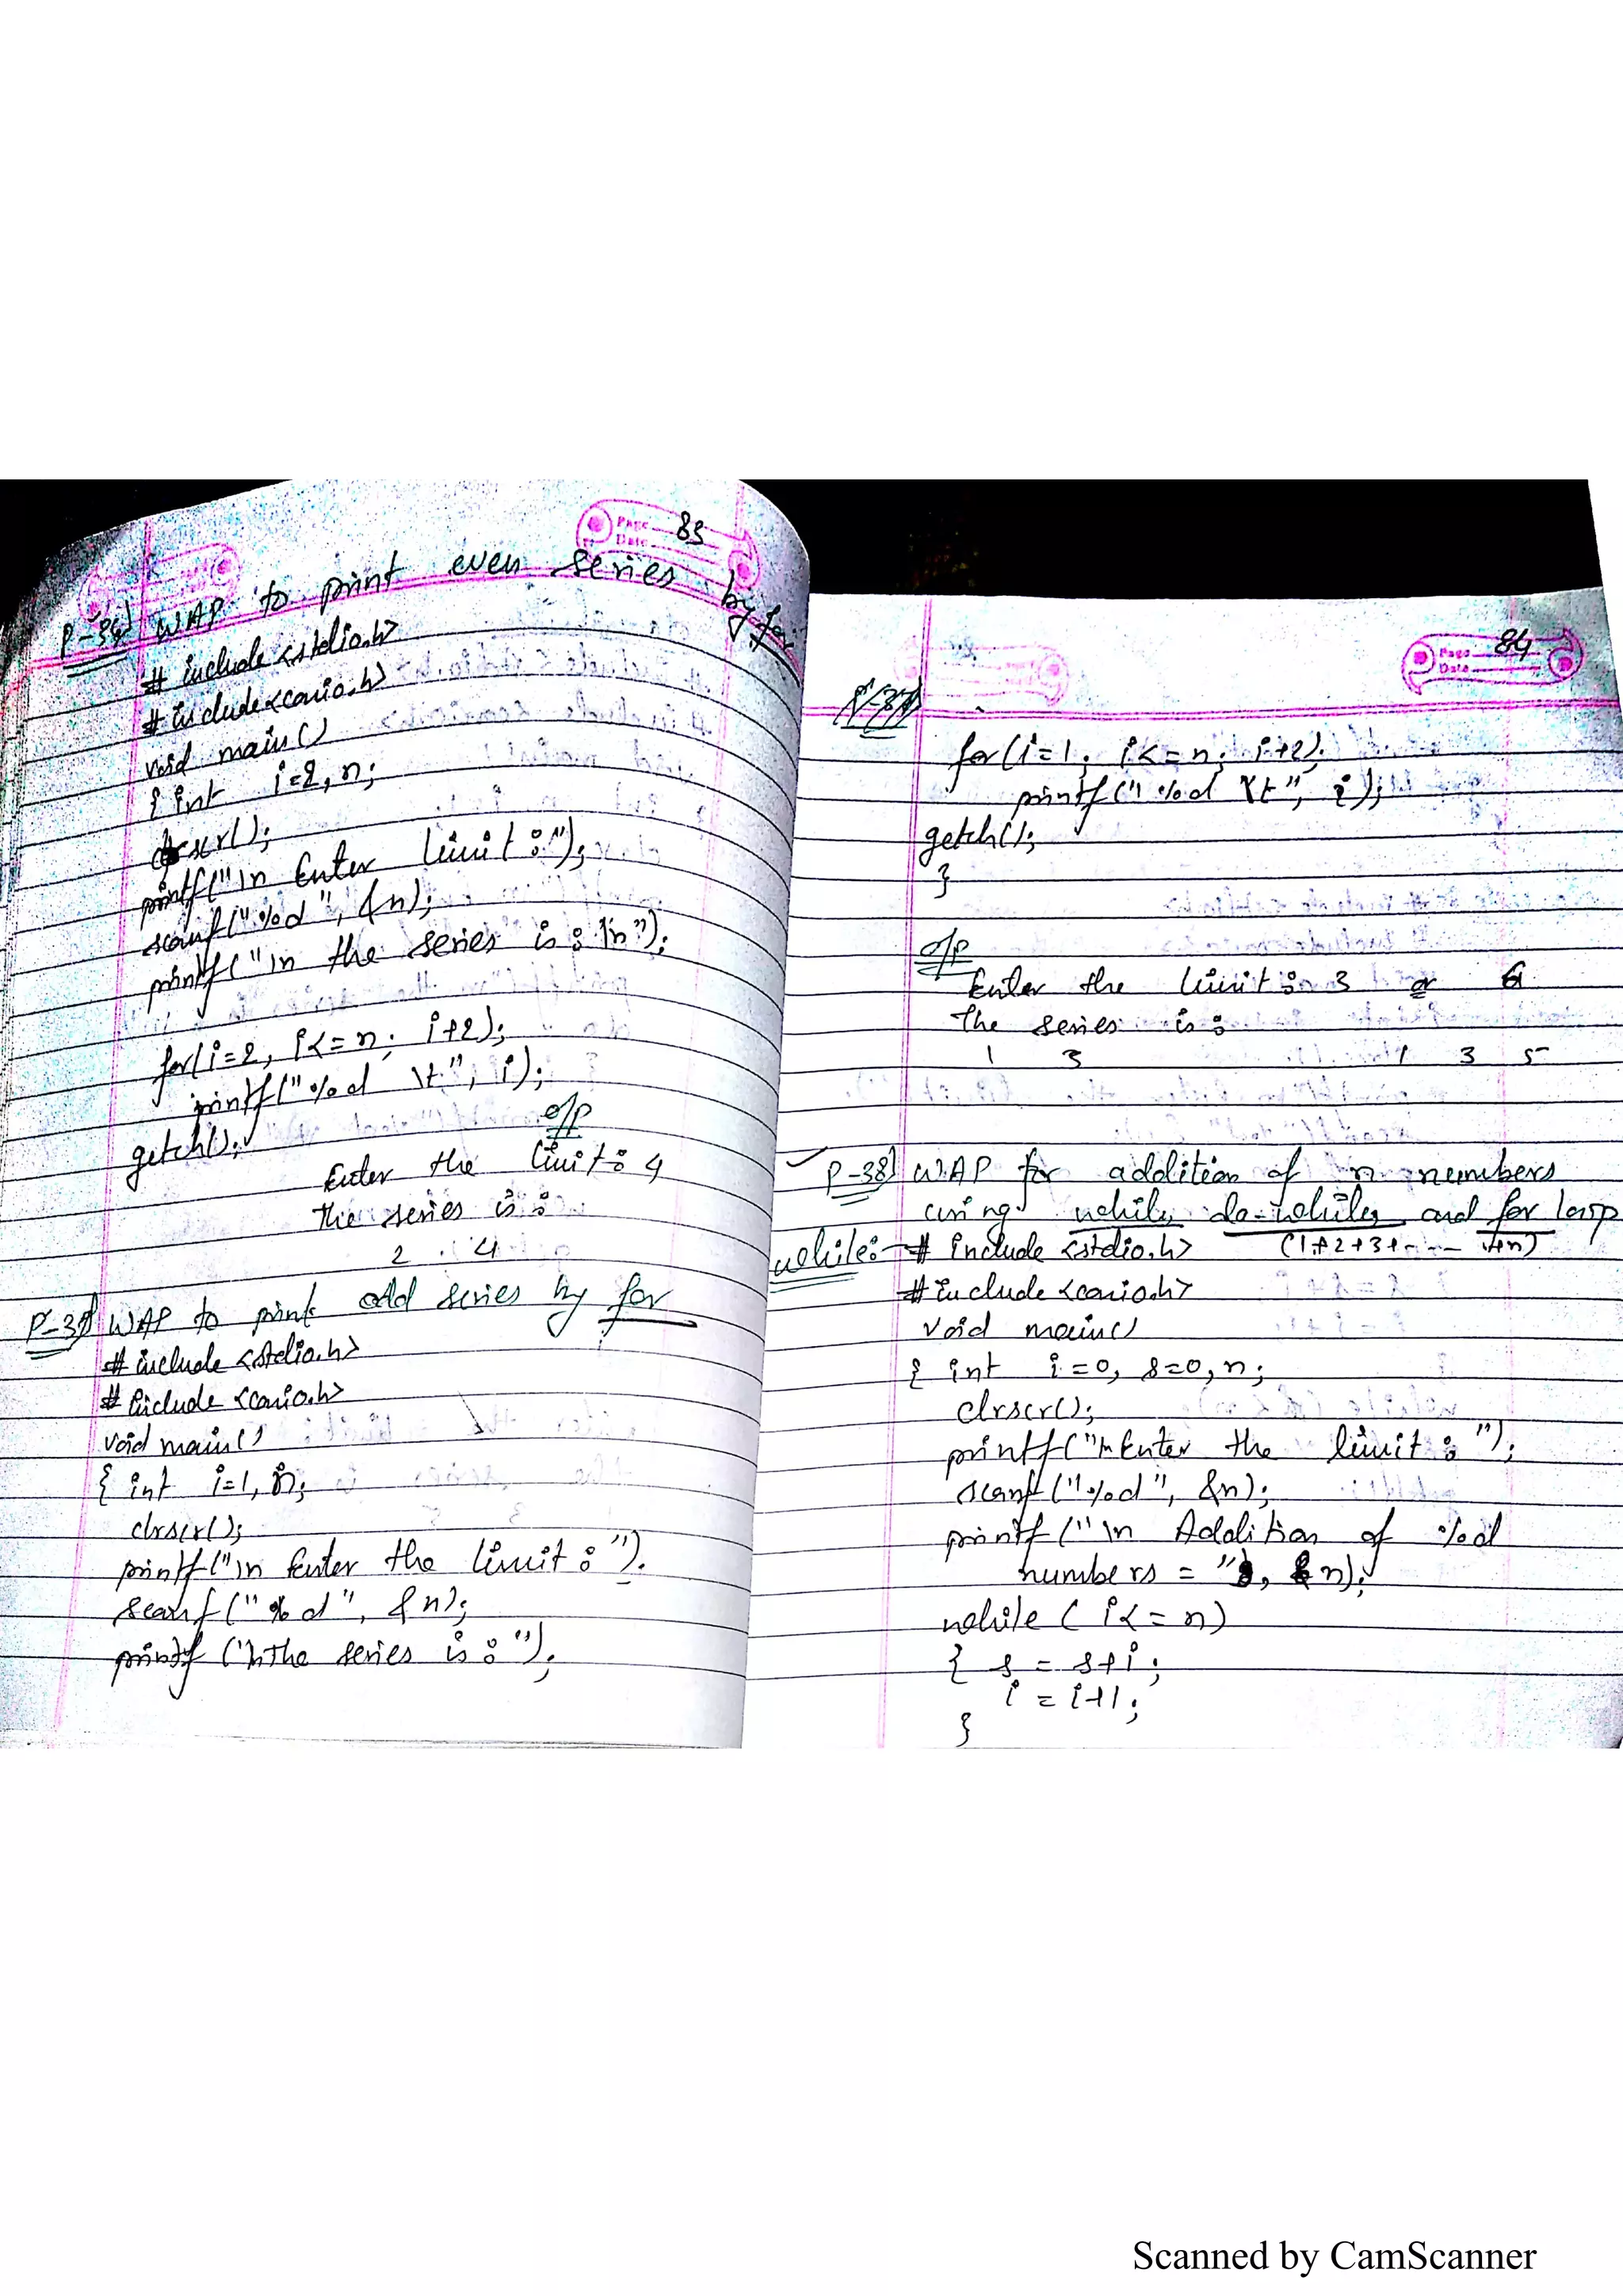 Page 83
Date
P-36) WAP to print even series by for
# include <stdio.h>
# include <conio.h>
void main()
{ int i=2, n;
clrscr();
printf("\n Enter limit :");
scanf("%d", &n);
printf("\n the series is : \n");
for(i=2, i<=n; i+2);
printf("%d \t", i);
getch();
o/p
Enter the limit : 4
The series is :
2 4
P-37) WAP to print odd series by for
# include <stdio.h>
# include <conio.h>
void main()
{ int i=1, n;
clrscr();
printf("\n Enter the limit : ");
scanf("%d", &n);
printf("\nThe series is : ");
Page 84
Date
P-37)
for(i=1; i<=n; i+2);
printf("%d \t", i);
getch();
}
o/p
Enter the limit : 3 or 6
The series is :
1 3 1 3 5
P-38) WAP for addition of n numbers
using while, do-while, and for loop
(1+2+3+-----+n)
while:- # include <stdio.h>
# include <conio.h>
void main()
{ int i=0, s=0, n;
clrscr();
printf("\nEnter the limit : ");
scanf("%d", &n);
printf("\n Addition of %d
numbers = ", n);
while (i<=n)
{ s = s+i;
i = i+1;
}
Scanned by CamScanner